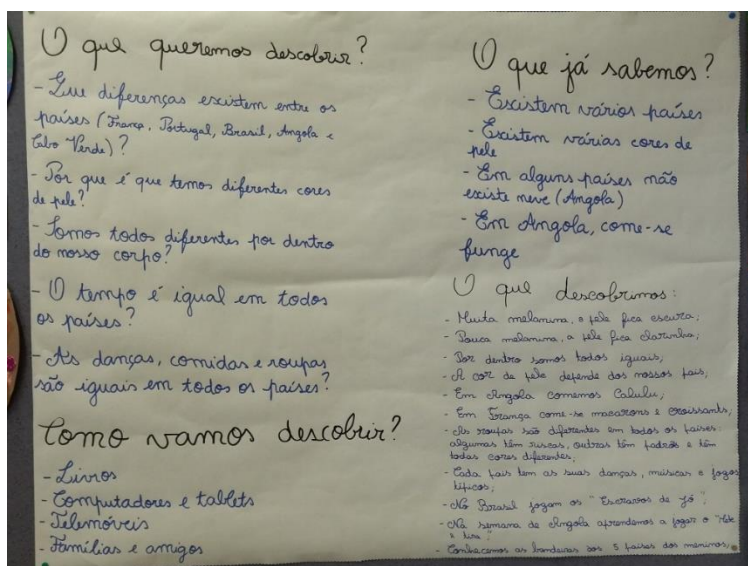 O que queremos descobrir?
- Que diferenças existem entre os
países (França, Portugal, Brasil, Angola e
Cabo Verde)?
- Por que é que temos diferentes cores
de pele?
- Somos todos diferentes por dentro
do nosso corpo?
- O tempo é igual em todos
os países?
- As danças, comidas e roupas
são iguais em todos os países?
Como vamos descobrir?
- Livros
- Computadores e tablets
- Telemóveis
- Famílias e amigos
O que já sabemos?
- Existem vários países
- Existem várias cores de
pele
- Em alguns países não
existe neve (Angola)
- Em Angola, come-se
funge
O que descobrimos:
- Muita melanina, a pele fica escura;
- Pouca melanina, a pele fica clarinha;
- Por dentro somos todos iguais;
- A cor de pele depende dos nossos pais;
- Em Angola comemos Calulu;
- Em França come-se macarons e croissants;
- As roupas são diferentes em todos os países:
algumas têm riscas, outras têm padrões e têm
todas cores diferentes;
- Cada país tem as suas danças, músicas e jogos
típicos;
- No Brasil jogam os "Escravos de Jó";
- Na semana de Angola aprendemos a jogar o
e tira";
- Conhecemos as bandeiras dos 5 países dos meninos;